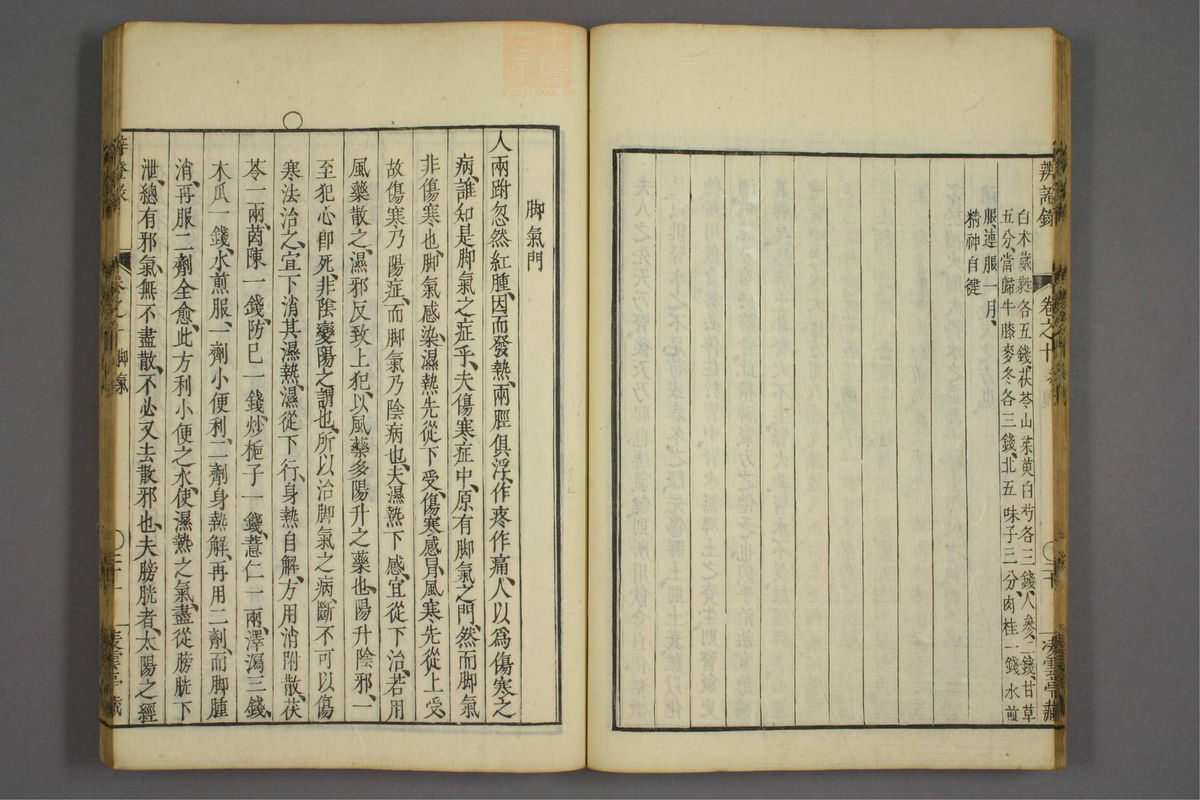 辨證錄
卷之十
三十
凌雲亭藏
白朮葳蕤各五錢茯苓山茱萸白芍各三錢人參二錢甘草
五分當歸牛膝麥冬各三錢北五味子二分肉桂一錢水煎
服連服一月
精神自健
脚氣門
人兩跗忽然紅腫因而發熱兩脛俱浮作疼作痛人以爲傷寒之
病誰知是脚氣之症乎夫傷寒症中原有脚氣之門然而脚氣
非傷寒也脚氣感染濕熱先從下受傷寒感冒風寒先從上受
故傷寒乃陽症而脚氣乃陰病也夫濕熱下感宜從下治若用
風藥散之濕邪反致上犯以風藥多陽升之藥也陽升陰邪一
至犯心即死非陰變陽之謂也所以治脚氣之病斷不可以傷
寒法治之宜下消其濕熱濕從下行身熱自解方用消附散茯
苓一兩茵陳一錢防已一錢炒梔子一錢薏仁一兩澤瀉三錢
木瓜一錢水煎服一劑小便利二劑身熱解再用二劑而脚腫
消再服二劑全愈此方利小便之水使濕熱之氣盡從膀胱下
泄總有邪氣無不盡散不必又去散邪也夫膀胱者太陽之經
卷之十
脚氣
凌雲亭藏